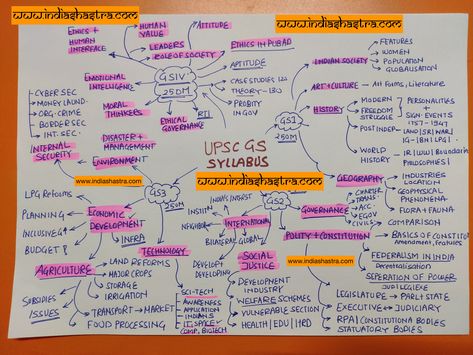 www.indiashastra.com
www.indiashastra.com
ETHICS +
HUMAN
INTERFACE
HUMAN
VALUE
ATTITUDE
LEADERS
ROLE OF SOCIETY
ETHICS IN PUBAD
GSIV
250M
APTITUDE
EMOTIONAL
INTELLIGENCE
CASE STUDIES
THEORY - 130
PROBITY
IN GOV
RTI
MORAL
THINKERS
ETHICAL
GOVERNANCE
CYBER SEC
MONEY LAUND.
ORG. CRIME
BORDER SEC
INT. SEC
INTERNAL
SECURITY
DISASTER +
MANAGEMENT
ENVIRONMENT
www.indiashastra.com
UPSC GS
SYLLABUS
www.indiashastra.com
INDIAN SOCIETY
FEATURES
WOMEN
POPULATION
GLOBALISATION
ART + CULTURE
Art Forms, Literature
GS1
250M
HISTORY
MODERN
FREEDOM
STRUGGLE
PERSONALITIES
+
SIGN. EVENTS
POST INDEP.
WORLD
HISTORY
GEOGRAPHY
INDUSTRIES
LOCATION
GEOPHYSICAL
PHENOMENA
FLORA + FAUNA
GS3
250M
LPG Reforms
PLANNING
INCLUSIVEG
BUDGET
ECONOMIC
DEVELOPMENT
INFRA
AGRICULTURE
LAND REFORMS
MAJOR CROPS
STORAGE
IRRIGATION
SUBSIDIES
ISSUES
TRANSPORT
MARKET
FOOD PROCESSING
TECHNOLOGY
SCI-TECH
AWARENESS
APPLICATION
INDIANS
IT, SPACE
COMP, BIOTECH
GS2
250M
INTERNATIONAL
INDIA'S INTREST
INSTIT
NEIGHBOR
BILATERAL
GLOBAL
DEVELOPD
DEVELOPING
SOCIAL
JUSTICE
DEVELOPMENT
INDUSTRY
WELFARE SCHEMES
VULNERABLE SECTION
HEALTH | EDU | HRD
GOVERNANCE
CHARTER
TRANS
ACC
EGOV
CIVILS
POLITY + CONSTITUTION
www.indiashastra.com
COMPARISON
BASICS OF CONSTIT
Amendment, Features
FEDERALISM IN INDIA
Decentralisation
SEPERATION OF POWER
LEGISLATURE
PARL + STATE
EXECUTIVE
JUDICIARY
RPA | CONSTITUTIONA BODIES
STATUATORY BODIES